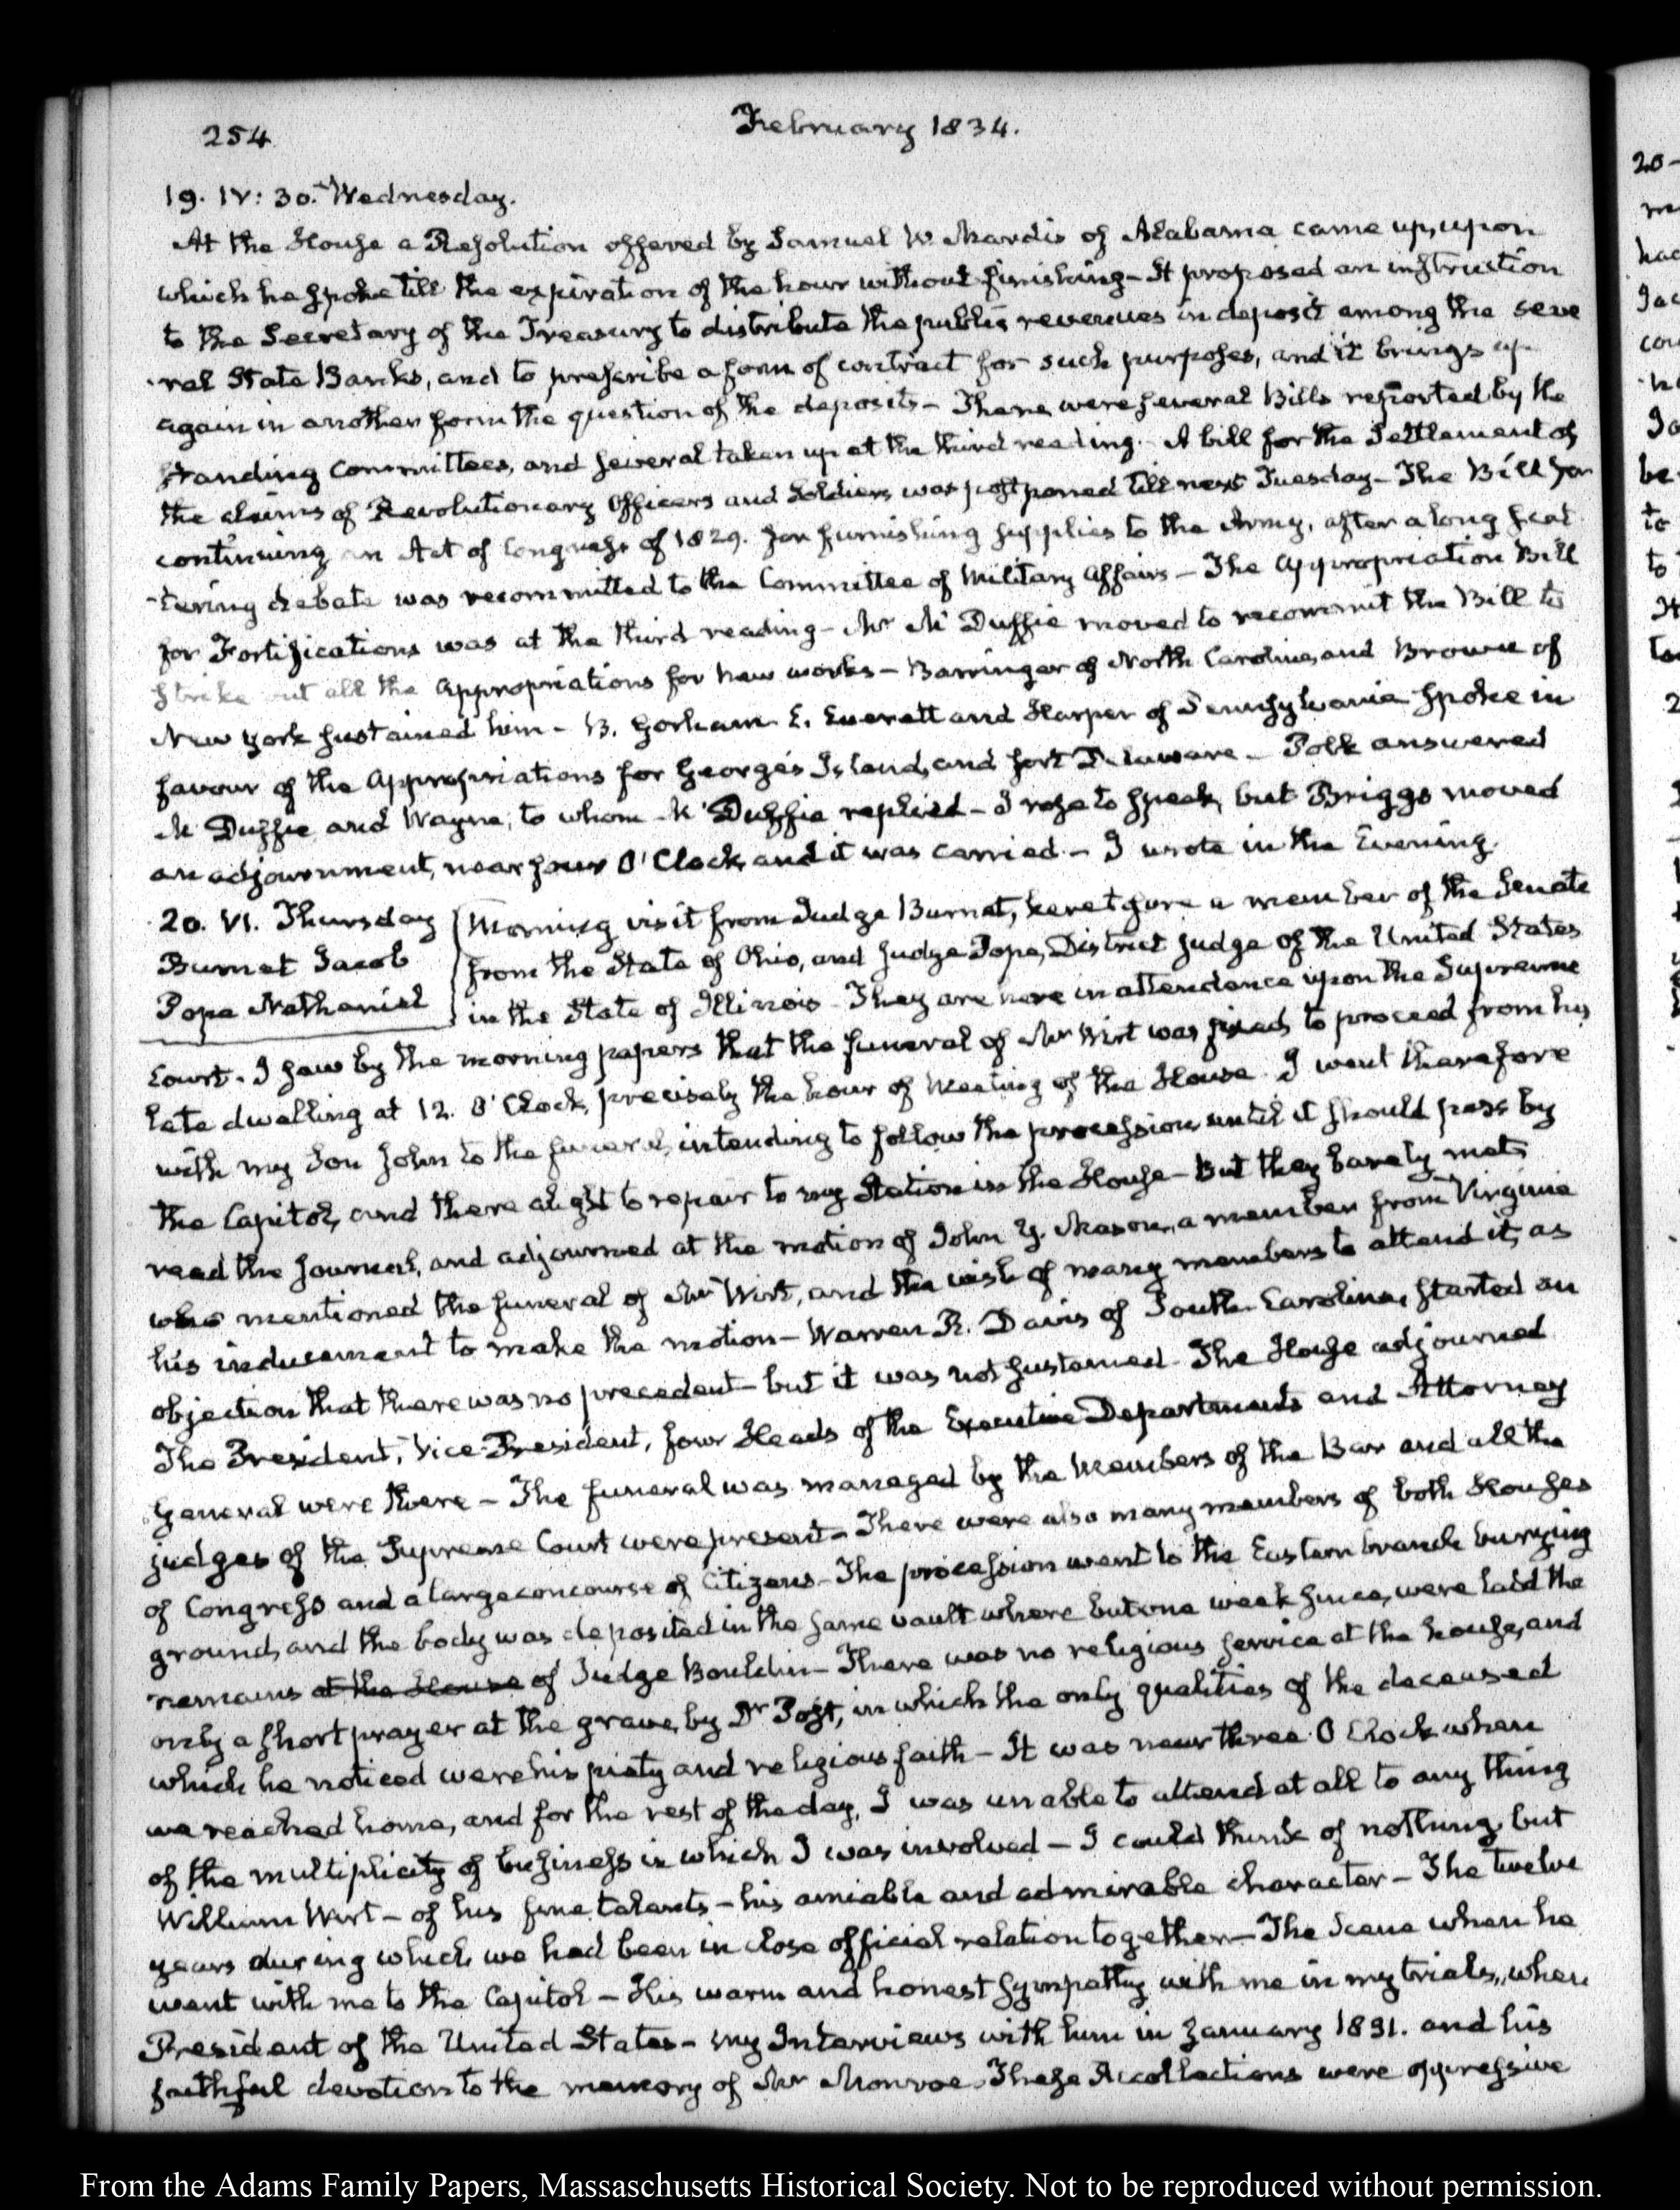 254
February 1834.
19. IV: 30. Wednesday.
At the House a Resolution offered by Samuel W. Mardis of Alabama came up, upon
which he spoke till the expiration of the hour without finishing - It proposed an instruction
to the Secretary of the Treasury to distribute the public revenues in deposit among the seve
-ral State Banks, and to prescribe a form of contract for such purposes, and it brings up
again in another form the question of the deposits - There were several Bills reported by the
standing Committees, and several taken up at the third reading. A bill for the Settlement of
the claims of Revolutionary Officers and Soldiers was postponed till next Tuesday - The Bill for
continuing an Act of Congress of 1829. for furnishing supplies to the Army, after a long scat
-tering debate was recommitted to the Committee of Military affairs - The Appropriation Bill
for Fortifications was at the third reading - Mr McDuffie moved to recommit the Bill to
strike out all the appropriations for new works - Barringer of North Carolina, and Brown of
New York sustained him - B. Gorham E. Everett and Harper of Pennsylvania spoke in
favour of the appropriations for George's Island, and fort Delaware - Polk answered
McDuffie and Wayne, to whom McDuffie replied - I rose to speak, but Briggs moved
an adjournment, near four O'Clock, and it was carried - I wrote in the Evening.
20. VI. Thursday
Burnet Jacob
Pope Nathaniel
Morning visit from Judge Burnet, heretofore a member of the Senate
from the State of Ohio, and Judge Pope, District Judge of the United States
in the State of Illinois - They are here in attendance upon the Supreme
Court. I saw by the morning papers that the funeral of Mr Wirt was fixed, to proceed from his
late dwelling at 12. O'Clock, precisely the hour of Meeting of the House. I went therefore
with my Son John to the funeral, intending to follow the procession until it should pass by
the Capitol, and there alight to repair to my Station in the House - But they barely met,
read the Journal, and adjourned at the motion of John Y. Mason, a member from Virginia
who mentioned the funeral of Mr Wirt, and the wish of many members to attend it, as
his inducement to make the motion - Warren R. Davis of South Carolina, started an
objection that there was no precedent - but it was not sustained - The House adjourned
The President, Vice-President, four Heads of the Executive Departments and Attorney
General were there - The funeral was managed by the Members of the Bar and all the
judges of the Supreme Court were present - There were also many members of both Houses
of Congress and a large concourse of Citizens - The procession went to the Eastern branch burying
ground, and the body was deposited in the same vault where but one week since, were laid the
remains at the House of Judge Bouldin - There was no religious service at the house, and
only a short prayer at the grave, by Dr Post, in which the only qualities of the deceased
which he noticed were his piety and religious faith - It was near three O Clock when
we reached home, and for the rest of the day, I was unable to attend at all to any thing
of the multiplicity of business in which I was involved - I could think of nothing but
William Wirt - of his fine talents - his amiable and admirable character - The twelve
years during which we had been in close official relation together - The Scene when he
went with me to the Capitol - His warm and honest sympathy with me in my trials, when
President of the United States - my Interviews with him in January 1831. and his
faithful devotion to the memory of Mr Monroe. These Recollections were oppressive
From the Adams Family Papers, Massachusetts Historical Society. Not to be reproduced without permission.